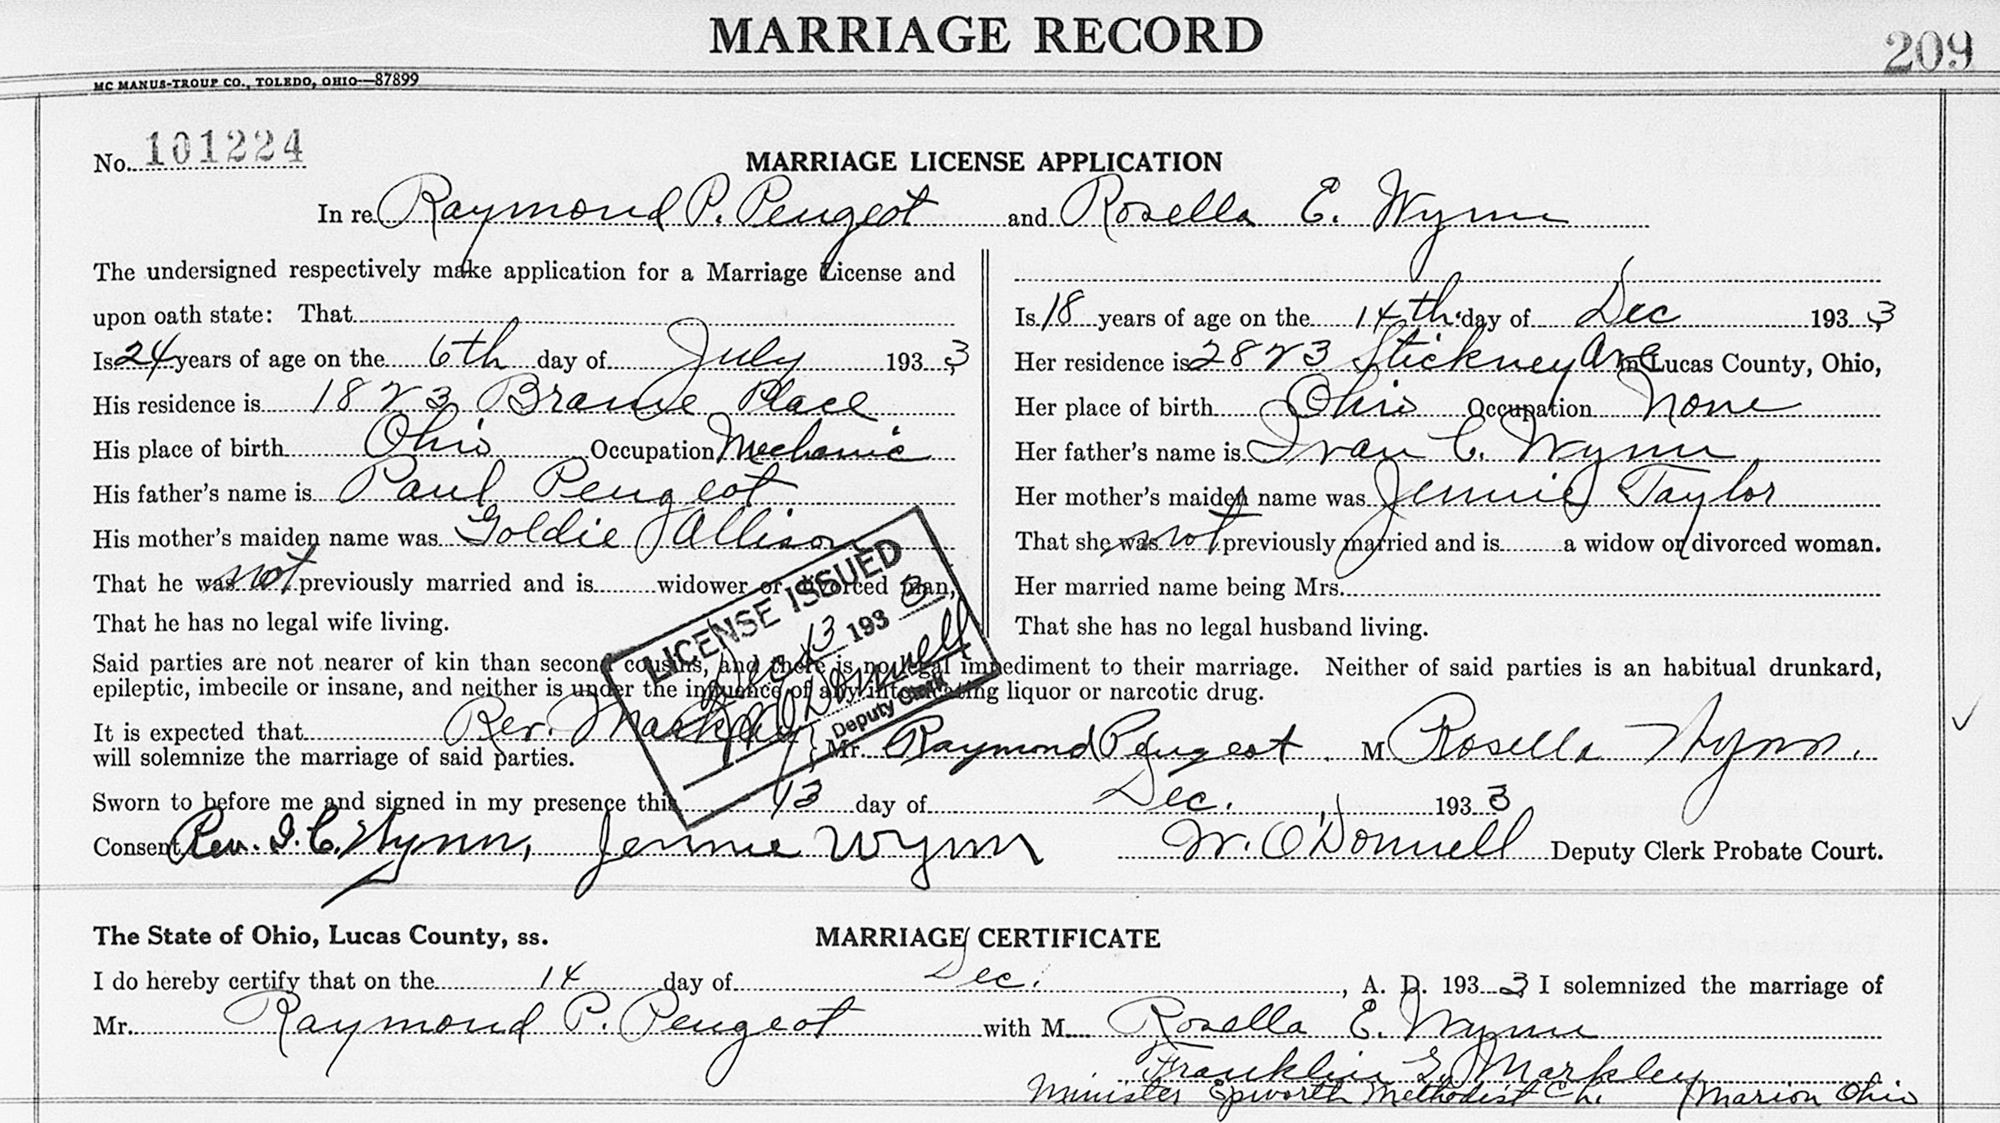 MARRIAGE RECORD
209
MC MANUS-TROUP CO., TOLEDO, OHIO—87899
No. 101224
MARRIAGE LICENSE APPLICATION
In re Raymond P. Peugeot and Rosella E. Wynn
The undersigned respectively make application for a Marriage License and
upon oath state: That
Is 24 years of age on the 6th day of July 1933
His residence is 1823 Brame Place
His place of birth Ohio Occupation Mechanic
His father's name is Paul Peugeot
His mother's maiden name was Goldie Allison
That he was not previously married and is widower or divorced man,
That he has no legal wife living.
Is 18 years of age on the 14th day of Dec 1933
Her residence is 2823 Stickney Ave in Lucas County, Ohio,
Her place of birth Ohio Occupation None
Her father's name is Ivan C. Wynn
Her mother's maiden name was Jennie Taylor
That she was not previously married and is a widow or divorced woman.
Her married name being Mrs.
That she has no legal husband living.
Said parties are not nearer of kin than second cousins, and there is no legal impediment to their marriage. Neither of said parties is an habitual drunkard,
epileptic, imbecile or insane, and neither is under the influence of any intoxicating liquor or narcotic drug.
LICENSE ISSUED
Dec 13 1933
O'Donnell
Deputy Clerk
It is expected that Rev. Markley
will solemnize the marriage of said parties. Mr. Raymond Peugeot M Rosella Wynn.
Sworn to before me and signed in my presence this 13 day of Dec. 1933
Consent Rev. I. C. Wynn, Jennie Wynn W. O'Donnell Deputy Clerk Probate Court.
The State of Ohio, Lucas County, ss. MARRIAGE CERTIFICATE
I do hereby certify that on the 14 day of Dec. , A. D. 1933 I solemnized the marriage of
Mr. Raymond P. Peugeot with M Rosella E. Wynn
Franklin G. Markley
Minister Epworth Methodist Ch. Marion Ohio